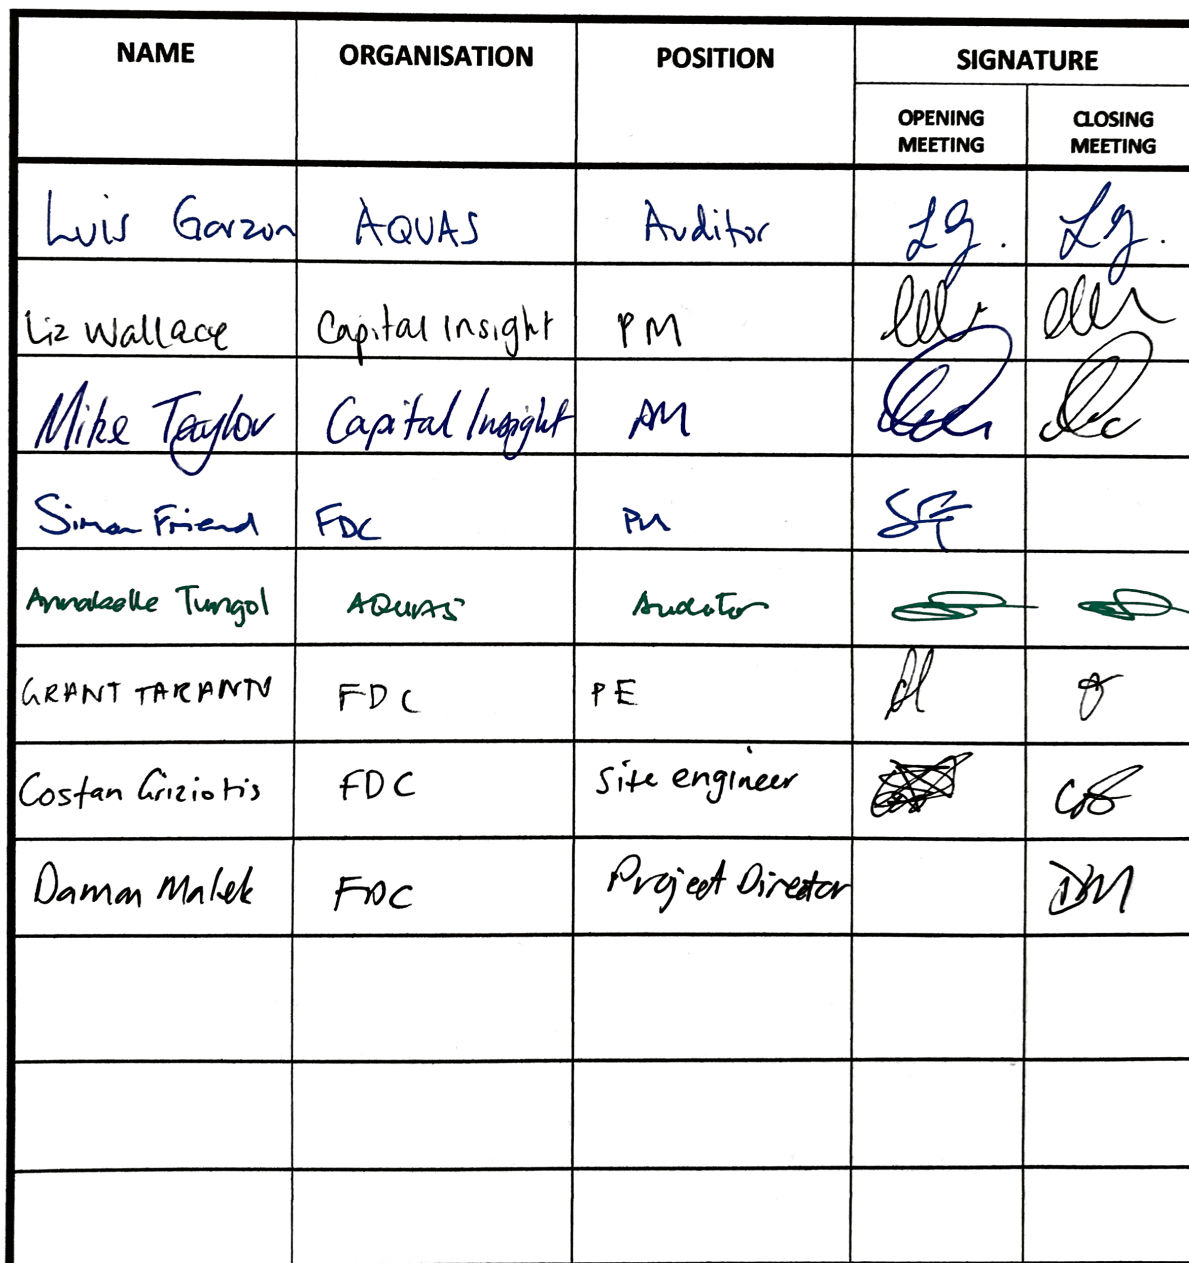 NAME ORGANISATION POSITION SIGNATURE
OPENING MEETING CLOSING MEETING
Luis Garzon AQUAS Auditor LG. LG.
Liz Wallace Capital Insight PM
Mike Taylor Capital Insight AM
Simon Friend FDC PM SF
Annabelle Tungol AQUAS Auditor
GRANT TARANTO FDC PE
Costan Griziotis FDC Site engineer
Daman Malek FDC Project Director DM